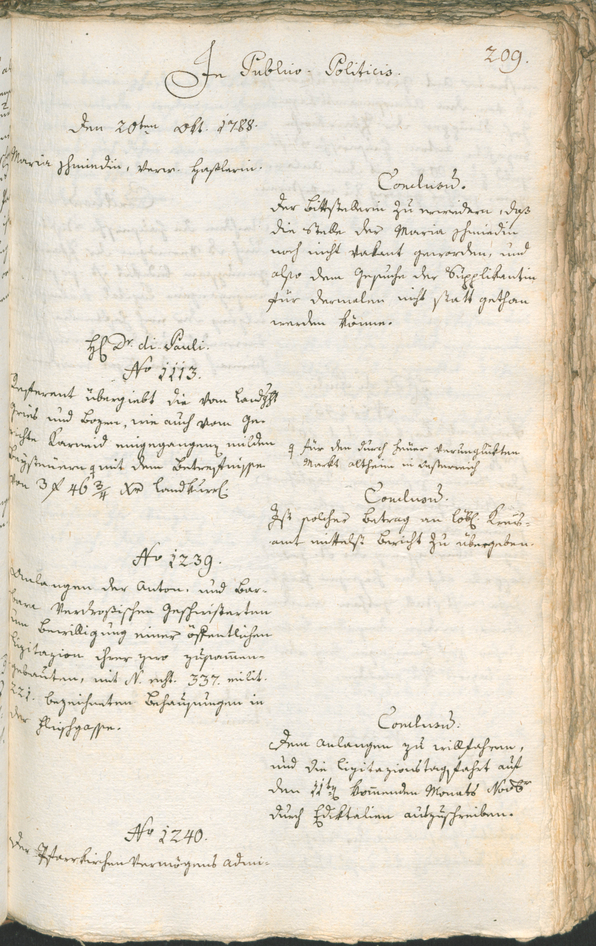 209.
In Publico-Politicis.
den 20ten Okt. 1788.
Maria Schmiedin, verw. Hasslerin.
Conclusum.
Der Bittstellerin zu erwiedern, daß
die Stelle der Maria Schmiedin
noch nicht vakant geworden, und
also dem Gesuche der Supplikantin
für dermalen nicht statt gethan
werden könne.
H. Dr. di Pauli.
No 1113.
Referent übergiebt die vom Landgst
Gries und Bozen, wie auch vom Ge-
richte Karneid eingegangene milden
Beysteuern mit dem Betreffnisse
von 3 f 46 3/4 Xr Landkurrs.
für den durch Feuer verunglükten
Markt Altheim in Oesterreich
Conclusum.
Ist solcher Betrag an löbl. Kreis-
amt mittelst Bericht zu übergeben.
No 1239.
Anlangen der Anton. und Bar-
bara Verdroßischen Geschwisterten
um Bewilligung einer öffentlichen
Lizitazion ihrer zwo zusammen-
gebauten, mit N. 337. milit.
221. bezeichneten Behausungen in
der Fleischgasse.
Conclusum.
Dem Anlangen zu willfahren,
und die Lizitazionstagsfahrt auf
den 11ten kommenden Monats Novbr
durch Ediktalien auszuschreiben.
No 1240.
Der Pfarrkirchen Vermögens Admi-